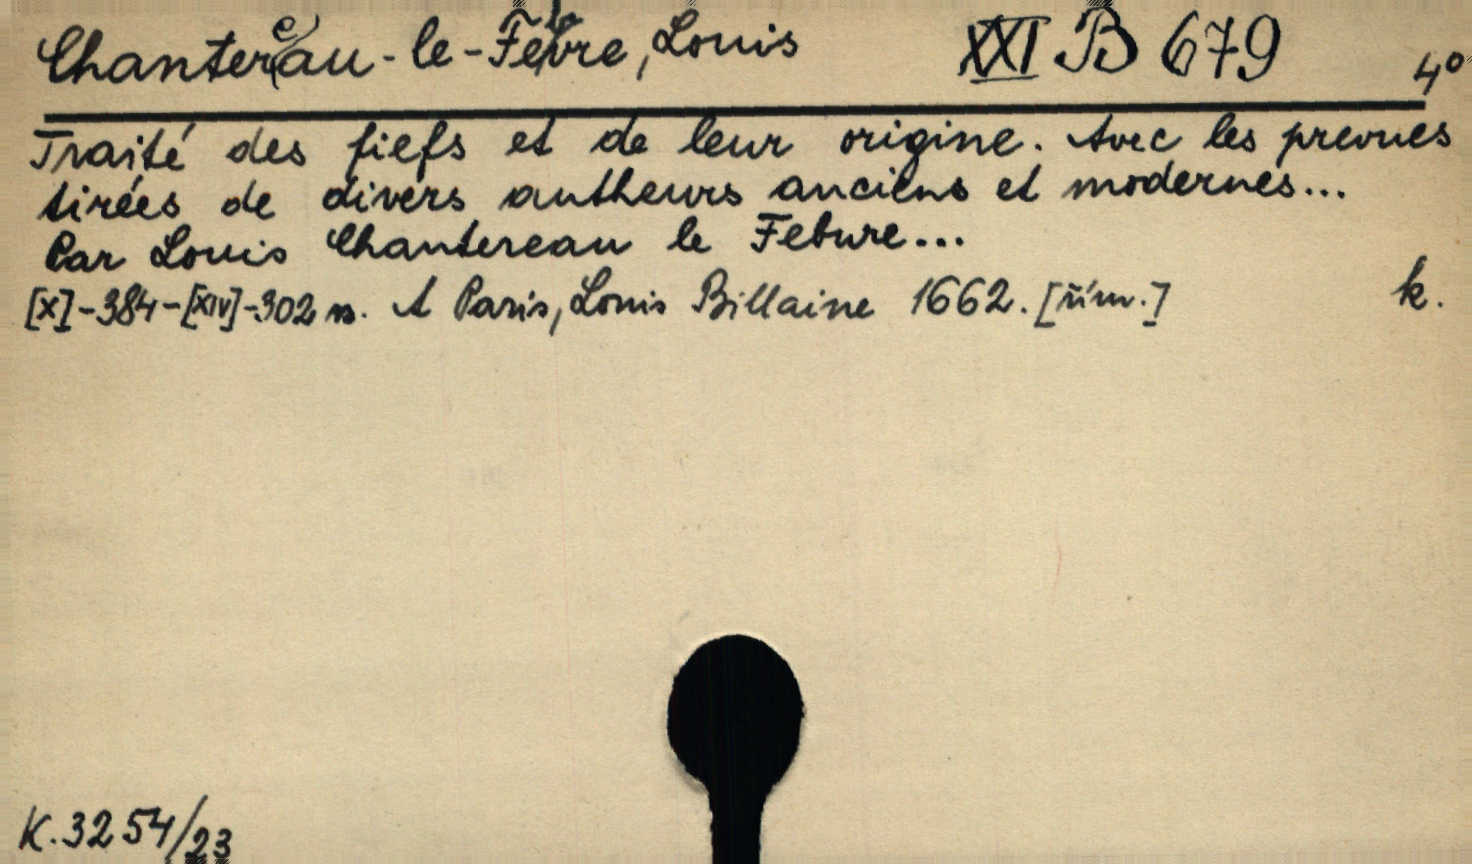 Chantereau-le-Febvre, Louis XXI B 679 4°
Traité des fiefs et de leur origine. Avec les preuues
tirées de divers autheurs anciens et modernes...
Par Louis Chantereau le Febure...
[X]-384-[XIV]-302 s. A Paris, Louis Billaine 1662. k.
K.3254/23